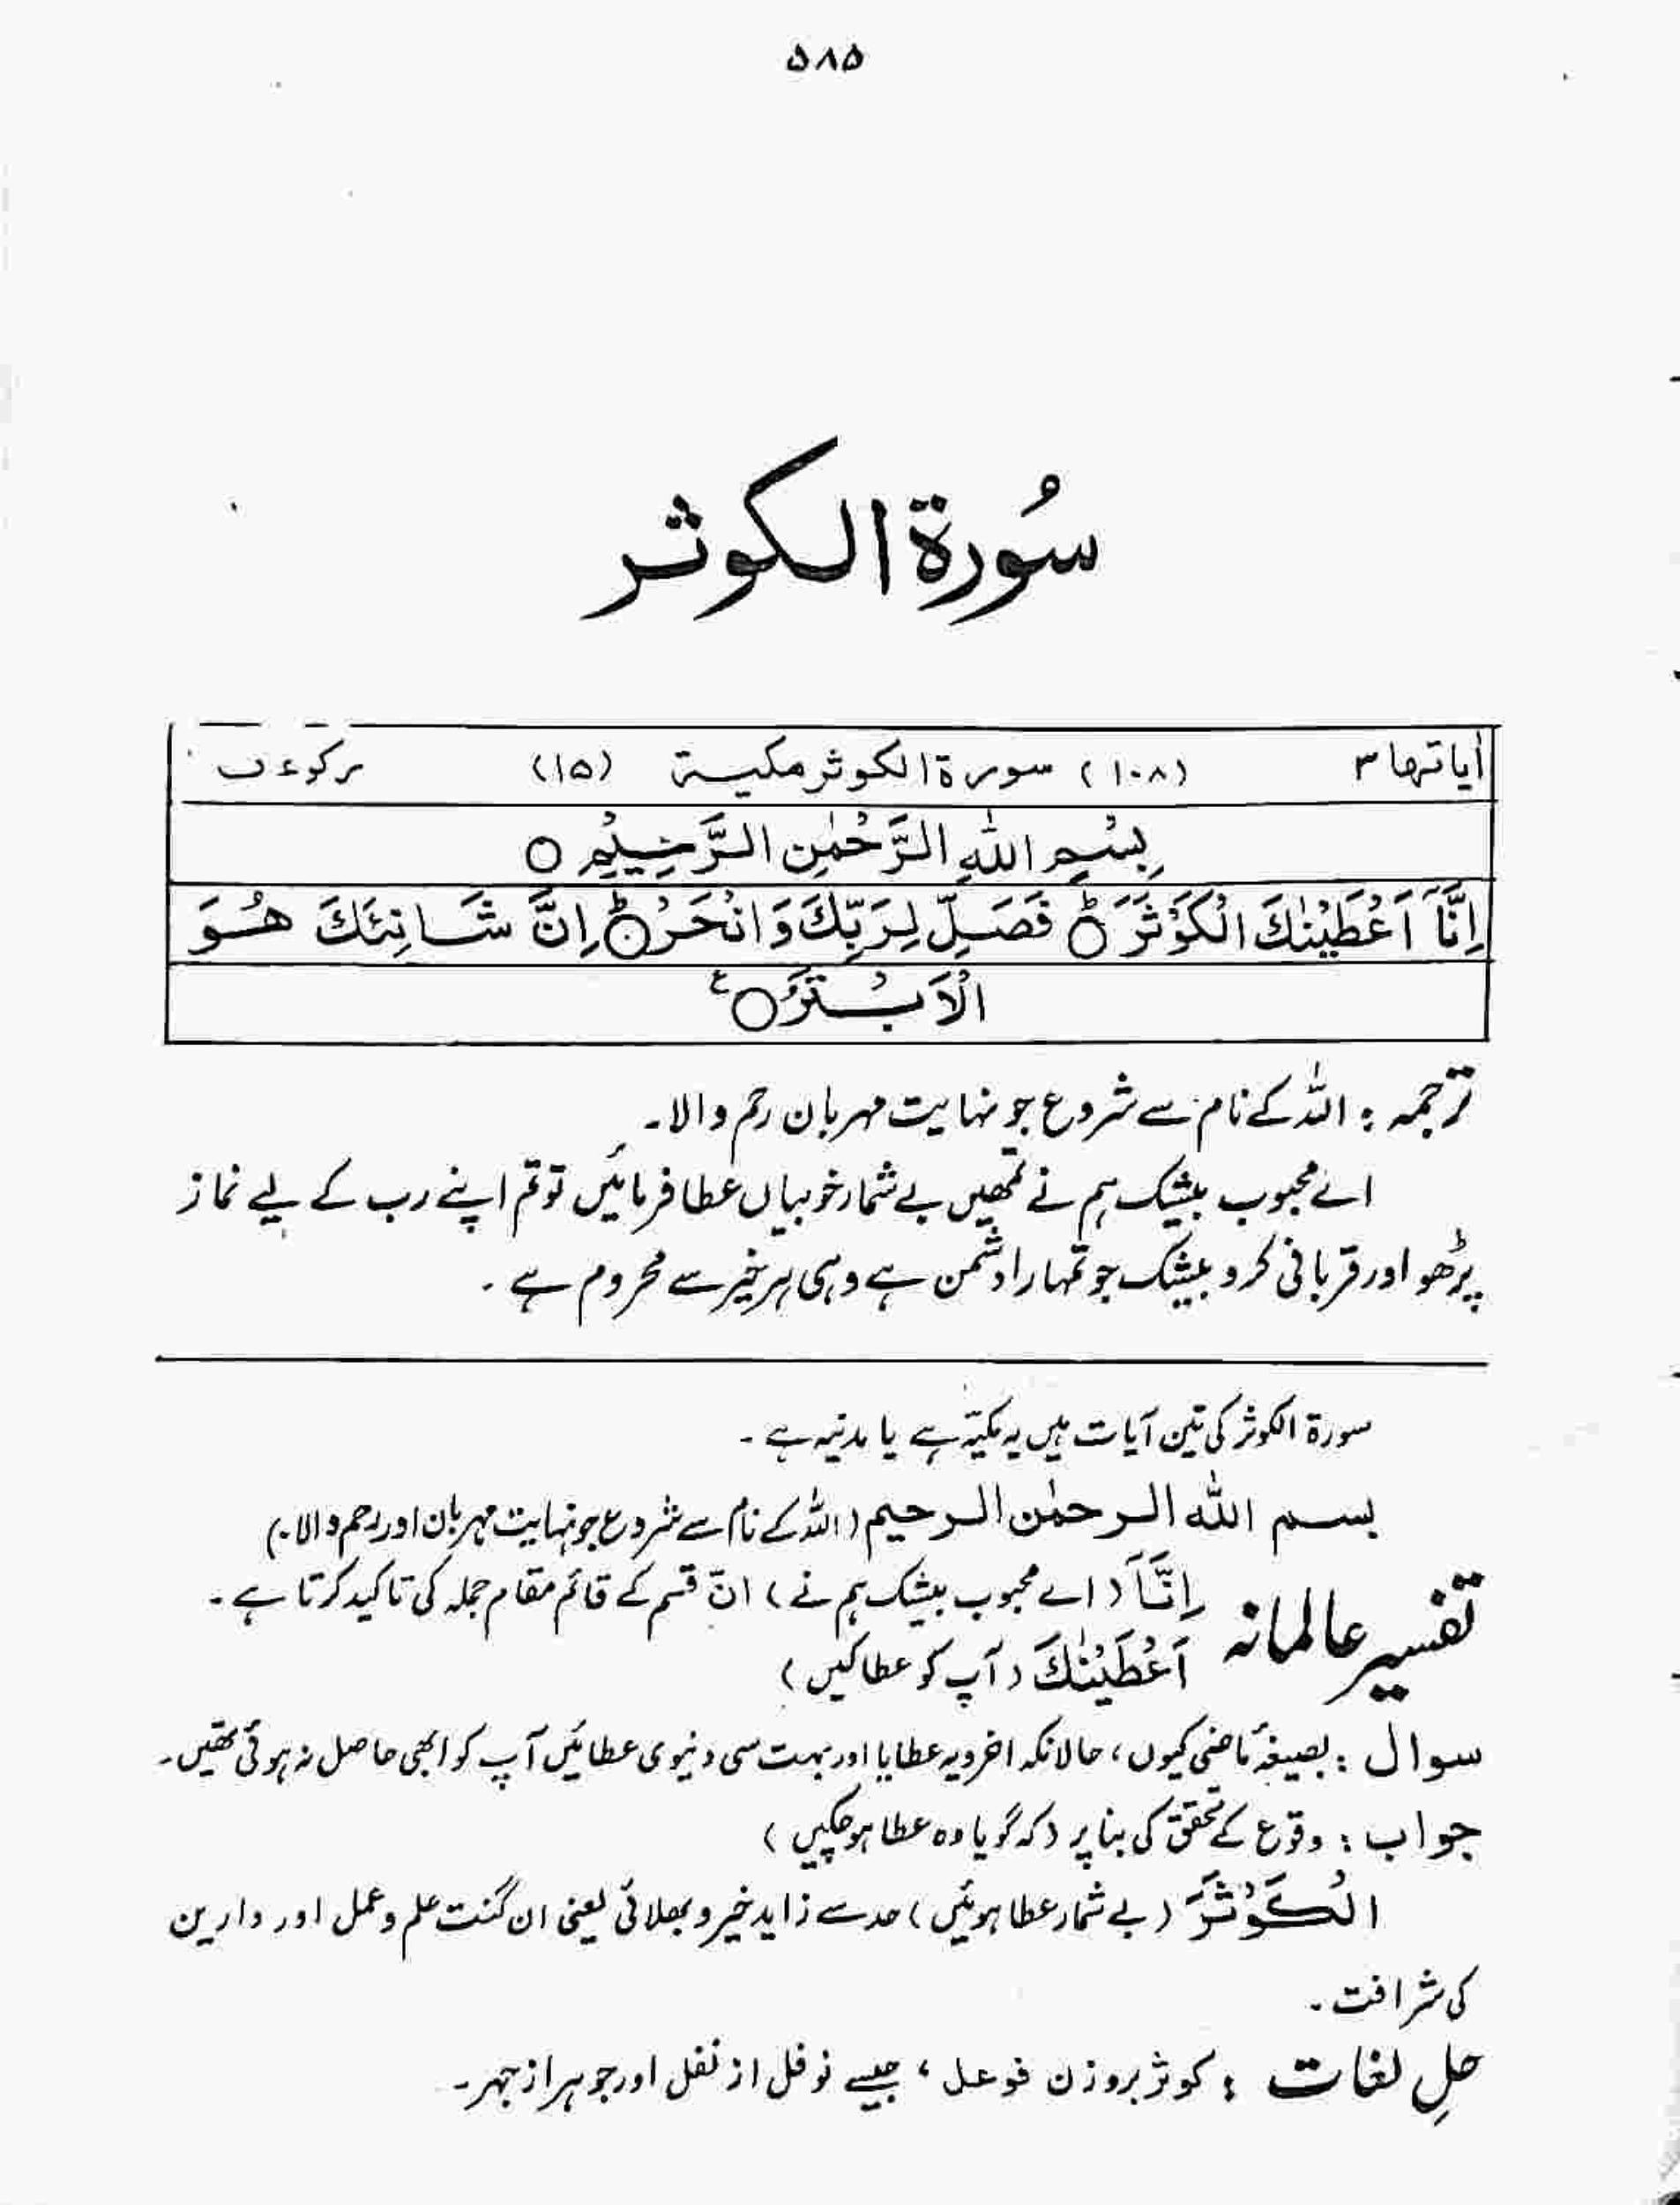 ۵۸۵
سُورة الکوثر
اٰیاتها ۳ (۱۰۸) سورة الکوثر مکیة (۱۵) رکوع
بِسْمِ اللّٰهِ الرَّحْمٰنِ الرَّحِیْمِ ○
اِنَّاۤ اَعْطَیْنٰكَ الْكَوْثَرَ ○ؕ فَصَلِّ لِرَبِّكَ وَانْحَرْ ○ؕ اِنَّ شَانِئَكَ هُوَ
الْاَبْتَرُ ○ع
ترجمہ : اللہ کے نام سے شروع جو نہایت مہربان رحم والا۔
اے محبوب بیشک ہم نے تمھیں بے شمار خوبیاں عطا فرمائیں تو تم اپنے رب کے لیے نماز
پڑھو اور قربانی کرو بیشک جو تمہارا دشمن ہے وہی ہر خیر سے محروم ہے ۔
سورة الکوثر کی تین آیات ہیں یہ مکیّہ ہے یا مدنیہ ہے ۔
بسم اللہ الرحمٰن الرحیم (اللہ کے نام سے شروع جو نہایت مہربان اور رحم والا۔)
تفسیر عالمانہ اِنَّاۤ (اے محبوب بیشک ہم نے) انّ قسم کے قائم مقام جملہ کی تاکید کرتا ہے ۔
اَعْطَیْنٰكَ (آپ کو عطا کیں)
سوال : بصیغۂ ماضی کیوں ، حالانکہ اخرویہ عطایا اور بہت سی دنیوی عطائیں آپ کو ابھی حاصل نہ ہوئی تھیں ۔
جواب : وقوع کے تحقق کی بنا پر (کہ گویا وہ عطا ہو چکیں)
الْكَوْثَرَ (بے شمار عطا ہوئیں) حد سے زاید خیر و بھلائی یعنی ان گنت علم و عمل اور دارین
کی شرافت ۔
حلِ لغات : کوثر بروزن فوعل ، جیسے نوفل از نفل اور جوہر از جہر ۔